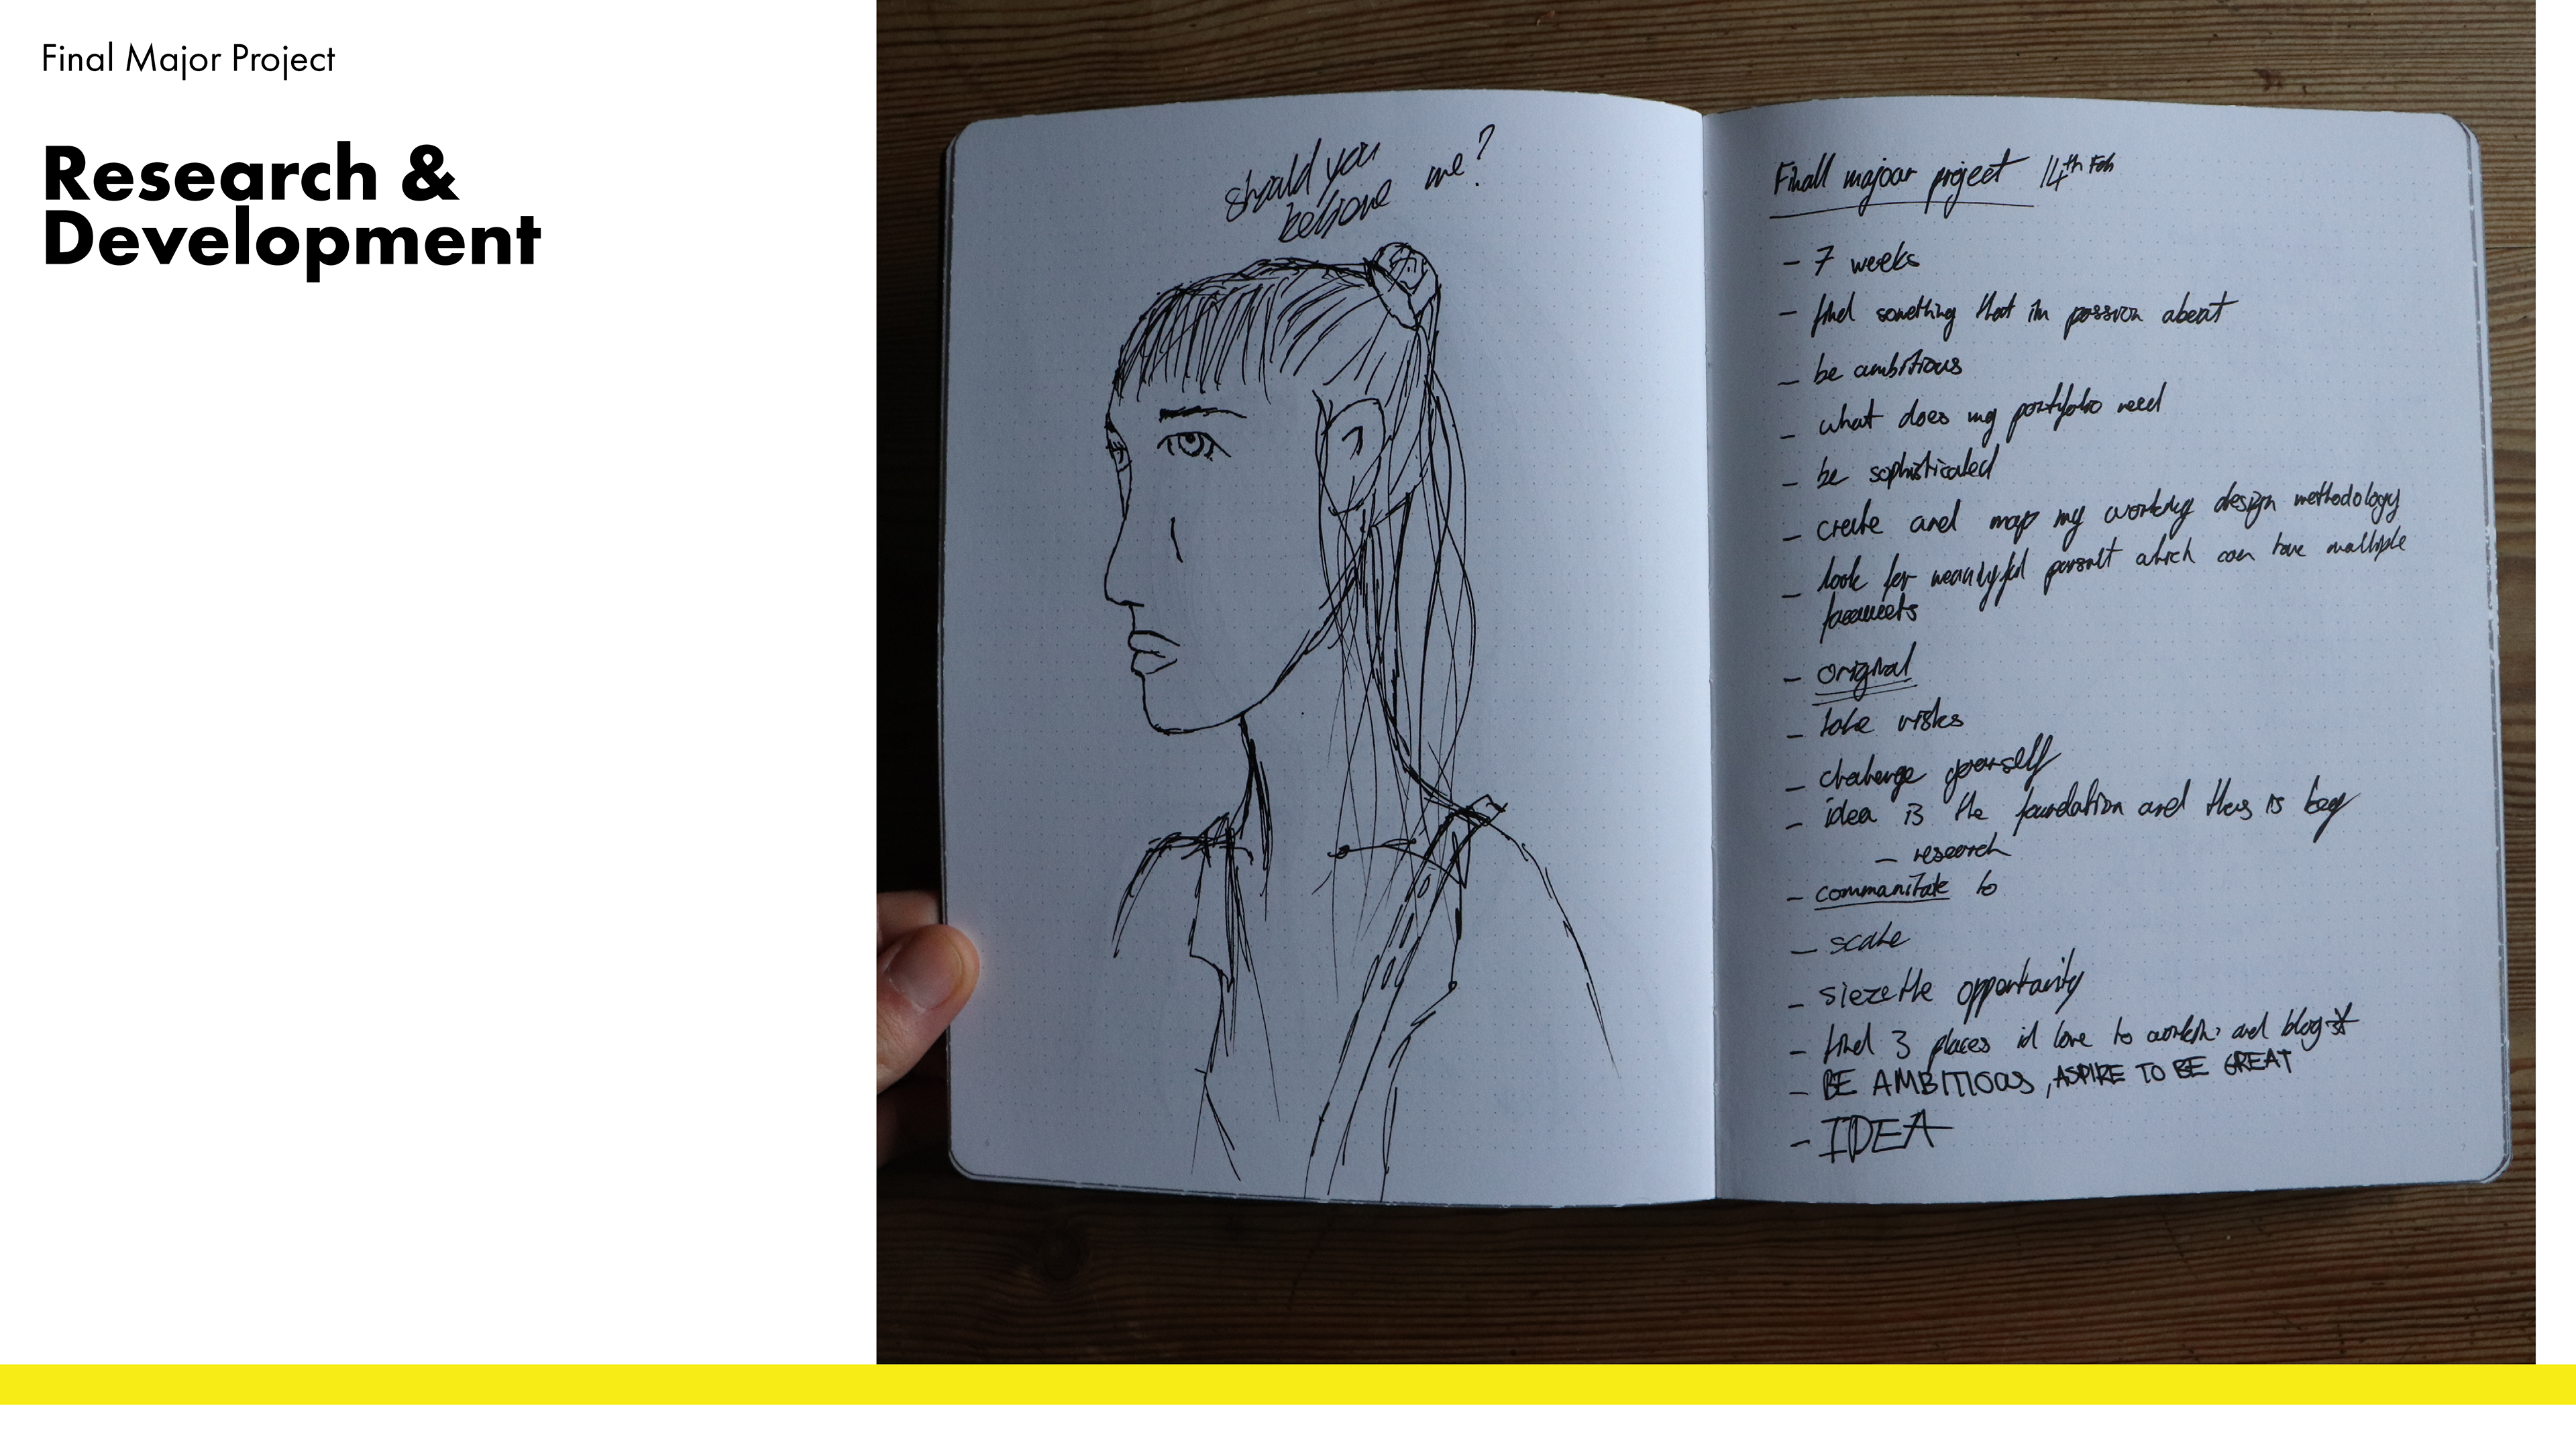 Final Major Project
Research &
Development
should you
believe me?
Finall majoar project 14th Feb
- 7 weeks
- find something that im passion about
- be ambitious
- what does my portfolio need
- be sophisticated
- create and map my working design methodology
- look for meaningful pursuit which can have multiple
- original
- take risks
- challenge yourself
- idea is the foundation and this is key
- research
- communitate to
- scale
- sieze the opportunity
- find 3 places id love to work and blog *
- BE AMBITIOUS, ASPIRE TO BE GREAT
- IDEA